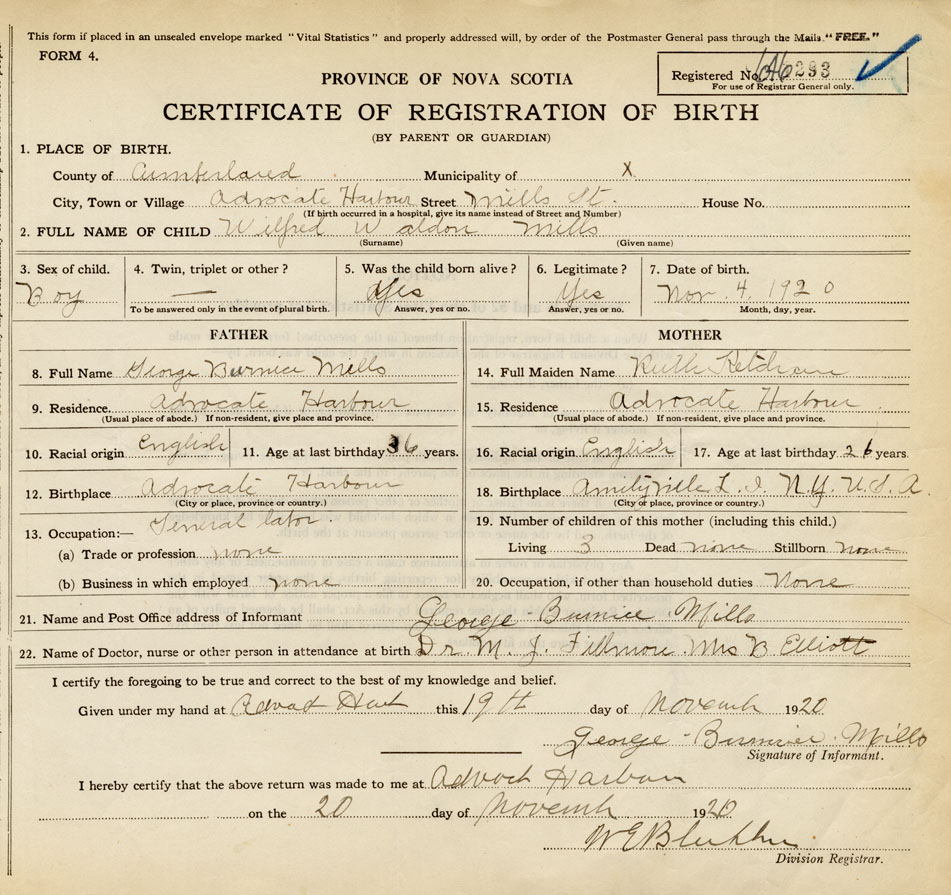 This form if placed in an unsealed envelope marked "Vital Statistics" and properly addressed will, by order of the Postmaster General pass through the Mails "FREE."
FORM 4.
Registered No. 293
For use of Registrar General only.
PROVINCE OF NOVA SCOTIA
CERTIFICATE OF REGISTRATION OF BIRTH
(BY PARENT OR GUARDIAN)
1. PLACE OF BIRTH.
County of Cumberland Municipality of X
City, Town or Village Advocate Harbour Street Mills St. House No.
(If birth occurred in a hospital, give its name instead of Street and Number)
2. FULL NAME OF CHILD Wilfred Waldon Mills
(Surname) (Given name)
3. Sex of child. 4. Twin, triplet or other? 5. Was the child born alive? 6. Legitimate? 7. Date of birth.
Boy — Yes Yes Nov. 4. 1920
To be answered only in the event of plural birth. Answer, yes or no. Answer, yes or no. Month, day, year.
FATHER
8. Full Name George Burnice Mills
9. Residence. Advocate Harbour
(Usual place of abode.) If non-resident, give place and province.
10. Racial origin English 11. Age at last birthday 36 years.
12. Birthplace Advocate Harbour
(City or place, province or country.)
General labor.
13. Occupation:—
(a) Trade or profession none
(b) Business in which employed none
MOTHER
14. Full Maiden Name Ruth Ketcham
15. Residence Advocate Harbour.
(Usual place of abode.) If non-resident, give place and province.
16. Racial origin English 17. Age at last birthday 26 years.
18. Birthplace Amityville L. I. N.Y. U.S.A.
(City or place, province or country.)
19. Number of children of this mother (including this child.)
Living 3 Dead none Stillborn none
20. Occupation, if other than household duties None
21. Name and Post Office address of Informant George Burnice Mills
22. Name of Doctor, nurse or other person in attendance at birth Dr M. J. Fillmore Mrs B Elliott
I certify the foregoing to be true and correct to the best of my knowledge and belief.
Given under my hand at this 19th day of Novemb 1920
George Burnice Mills
Signature of Informant.
I hereby certify that the above return was made to me at Advoct Harbour
on the 20 day of Novemb 1920
Division Registrar.